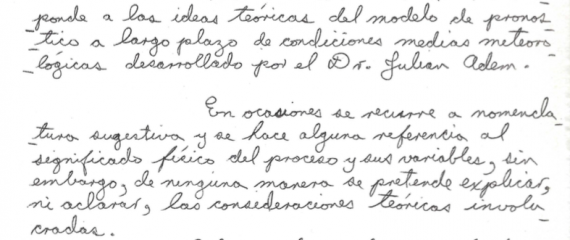 ponde a las ideas teóricas del modelo de pronos_
_tico a largo plazo de condiciones medias meteoro
_lógicas desarrollado por el Dr. Julian Adem.
En ocasiones se recurre a nomencla_
tura sugestiva y se hace alguna referencia al
significado físico del proceso y sus variables, sin
embargo, de ninguna manera se pretende explicar,
ni aclarar, las consideraciones teóricas involu
cradas.